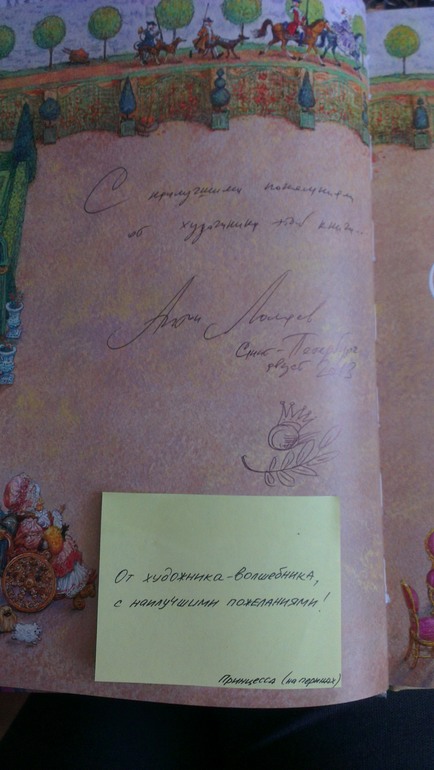 С наилучшими пожеланиями
от художника этой книги...
Антон Ломаев
Санкт-Петербург
август 2013
От художника-волшебника,
с наилучшими пожеланиями!
Принцесса (на перинах)